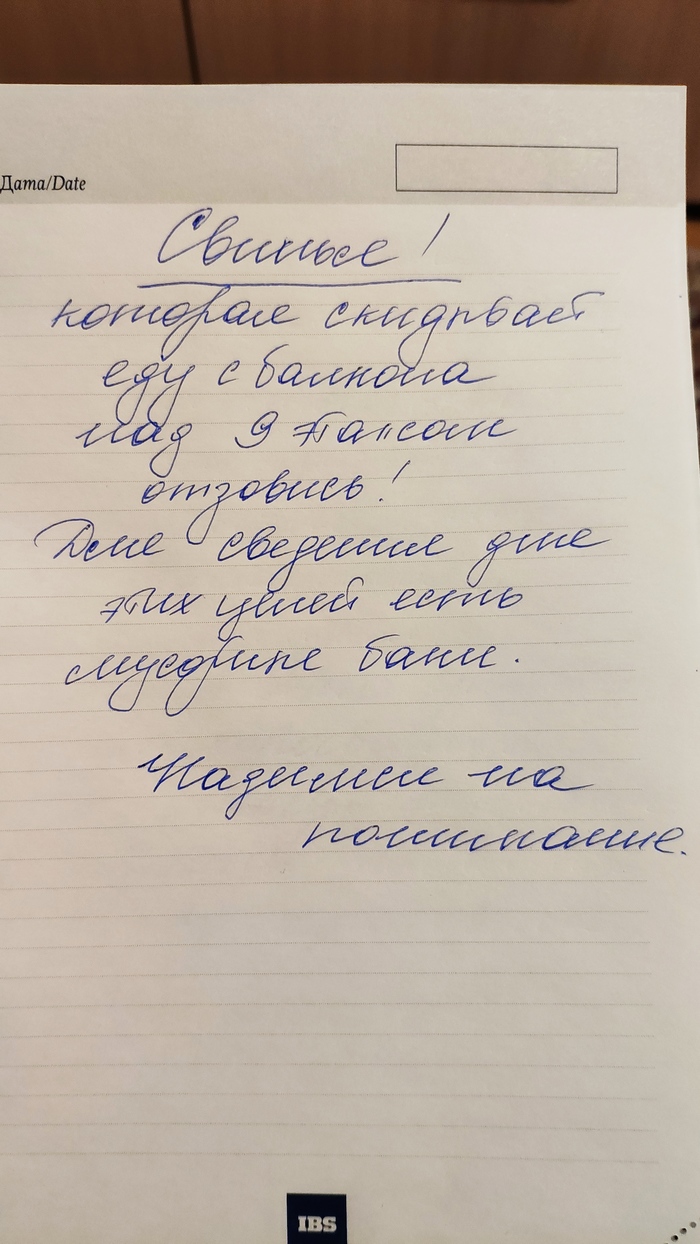 Дата/Date
Свинья!
которая скидывает
еду с балкона
над 9 этажом
отзовись!
Для сведения для
этих целей есть
мусорные баки.
Надеемся на
понимание.
IBS